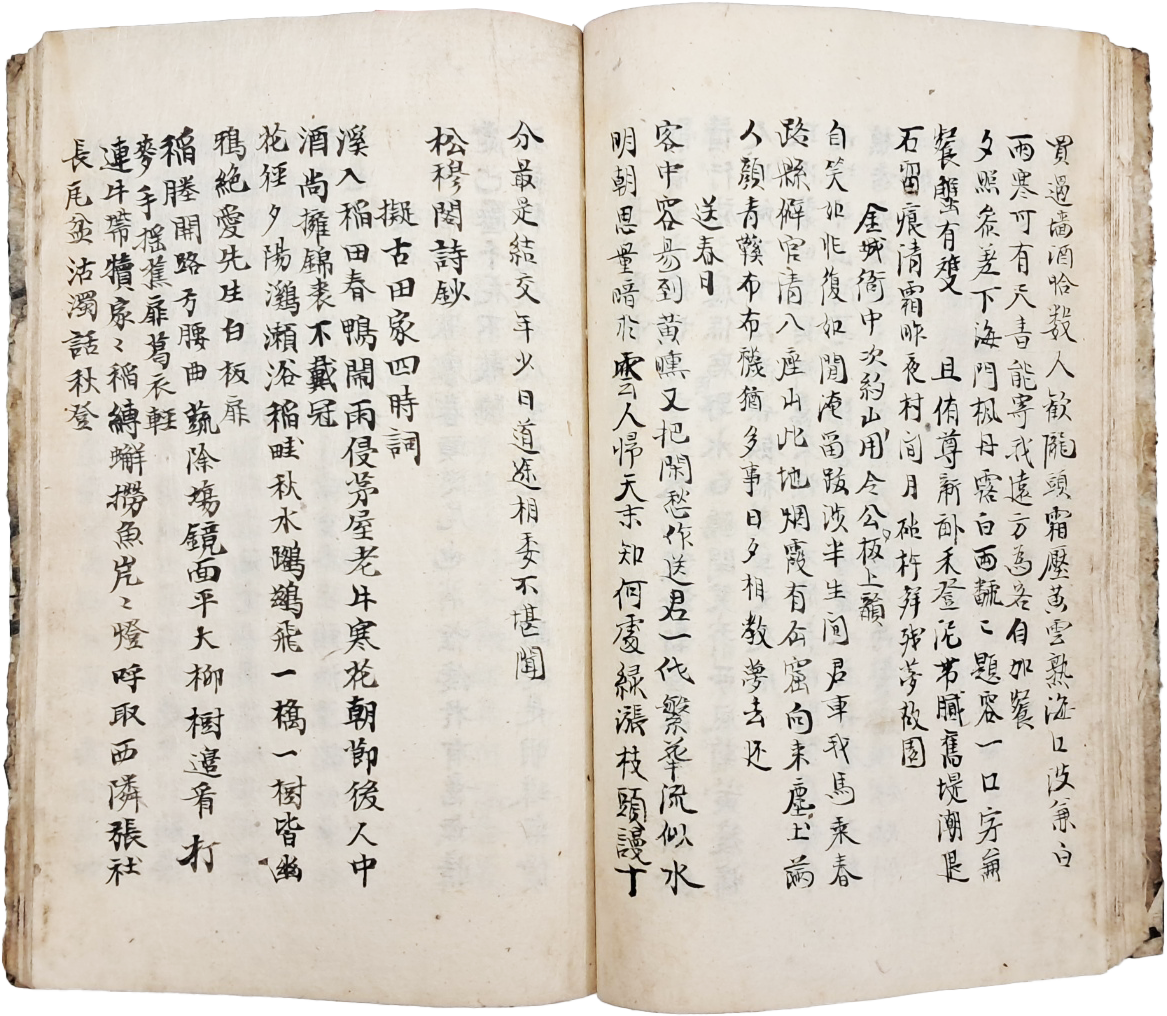 買過墻酒哈数人歓隴頭霜壓黃雲熟海口波兼白
雨寒可有天書能寄我遠方為客自加餐
夕照参差下海門楓丹露白西飜飜題容一口字兼
餐蟹有雙　且侑尊新酎禾登泥帯膩舊堤潮退
石留痕清霜昨夜村间月砧杵聲残夢故園
金城衙中次約山用令公板上韻
自笑北非復如閒淹留跋渉半生间君車我馬乘春
路縣僻官清八座山此地烟霞有石窟向来塵土滿
人顏青鞋布布襪猶多事日夕相教夢去还
送春日
客中容易到黃曛又把閑愁作送君一代繁華流似水
明朝思量暗於雲人帰天末知何處緑漲枝頭謾十
分最是結交年少日道途相委不堪聞
松穆閣詩鈔
擬古田家四時詞
溪入稲田春鴨闹雨侵茅屋老牛寒花朝節後人中
酒尚擁錦裘不戴冠
花径夕陽鸂瀬浴稲畦秋水躅鷁飛一橋一樹皆幽
鴉絶愛先生白板扉
稲塍開路方腰曲蔬除塲鏡面平大柳樹邉看打
麥手揺蕉扉葛衣軽
連牛帯犢家〻稲縛蠏撈魚岸〻燈呼取西隣張社
長尾盆沽濁話秋登